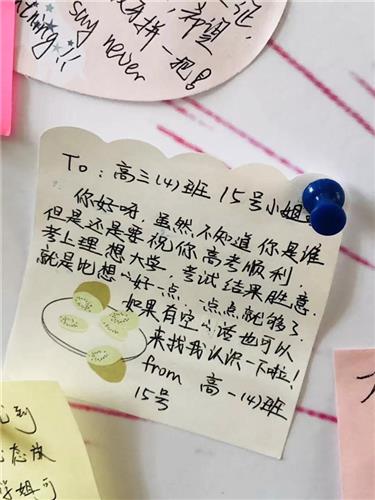 证,
,希望
拼一把!
say never
thing!!
To:高三(4)班 15号小姐
你好呀,虽然不知道你是谁
但是还是要祝你高考顺利,
考上理想大学,考试结果胜意.
就是比想的好一点,一点点就够了
如果有空的话也可以
来找我认识一下啦!
from 高一(4)班
15号
到
态放
姐可